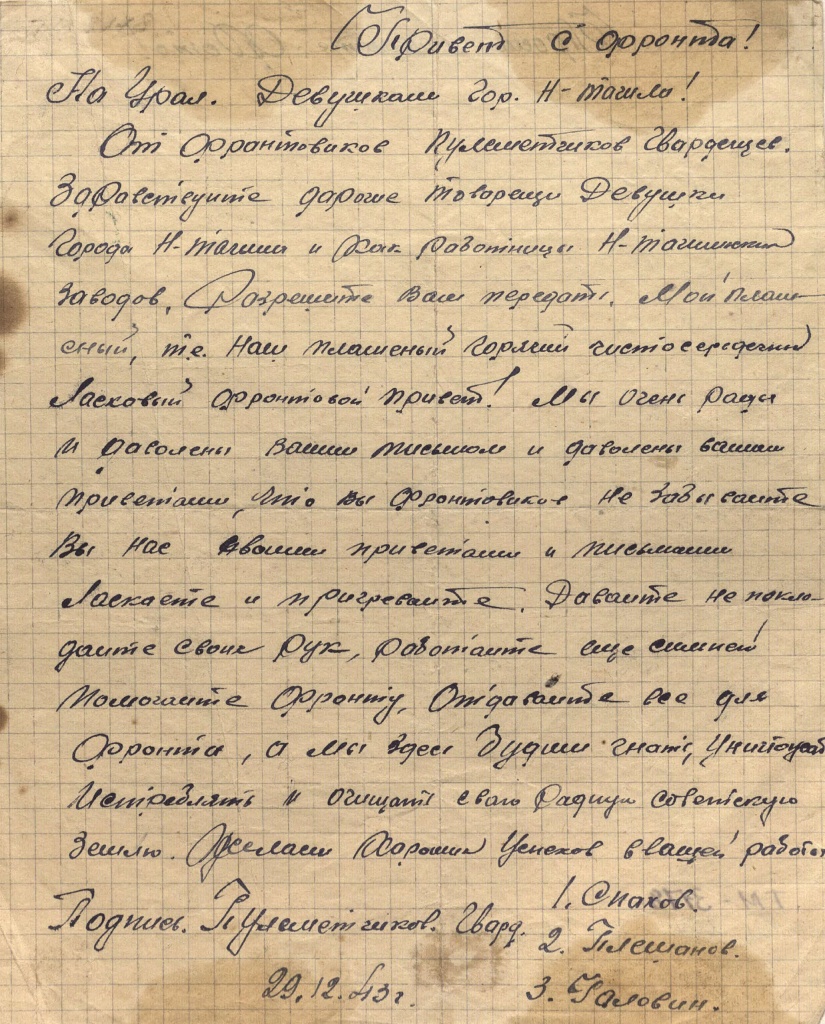 Привет с фронта!
На Урал. Девушкам гор. Н-тагила!
От фронтовиков пулеметчиков Гвардейцев.
Здравствуйте дарогие товарещи Девушки
Города Н-тагила и как работницы Н-тагильских
заводов, Разрешите Вам передать. Мой плам-
еный, т.е. Наш пламеный горячий чистосердечный
Ласковый фронтовой привет! Мы очень рады
и даволены вашим письмом и даволены вашими
приветами, что вы фронтовиков не забываите
Вы нас своими приветами и письмами
Ласкаете и пригреваите. Даваите не покла-
даите своих рук, работаите еще сильней
помогаите фронту, Отдаваите все для
фронта, а мы здесь будим гнать, уничтожать
Истреблять и очищать сваю радную советскую
землю. Желаем Хароших Успехов в вашей работе
Подпись. Пулеметчиков. Гвард.
1. Спахов.
2. Плешанов.
3. Галовин.
29.12.43 г.